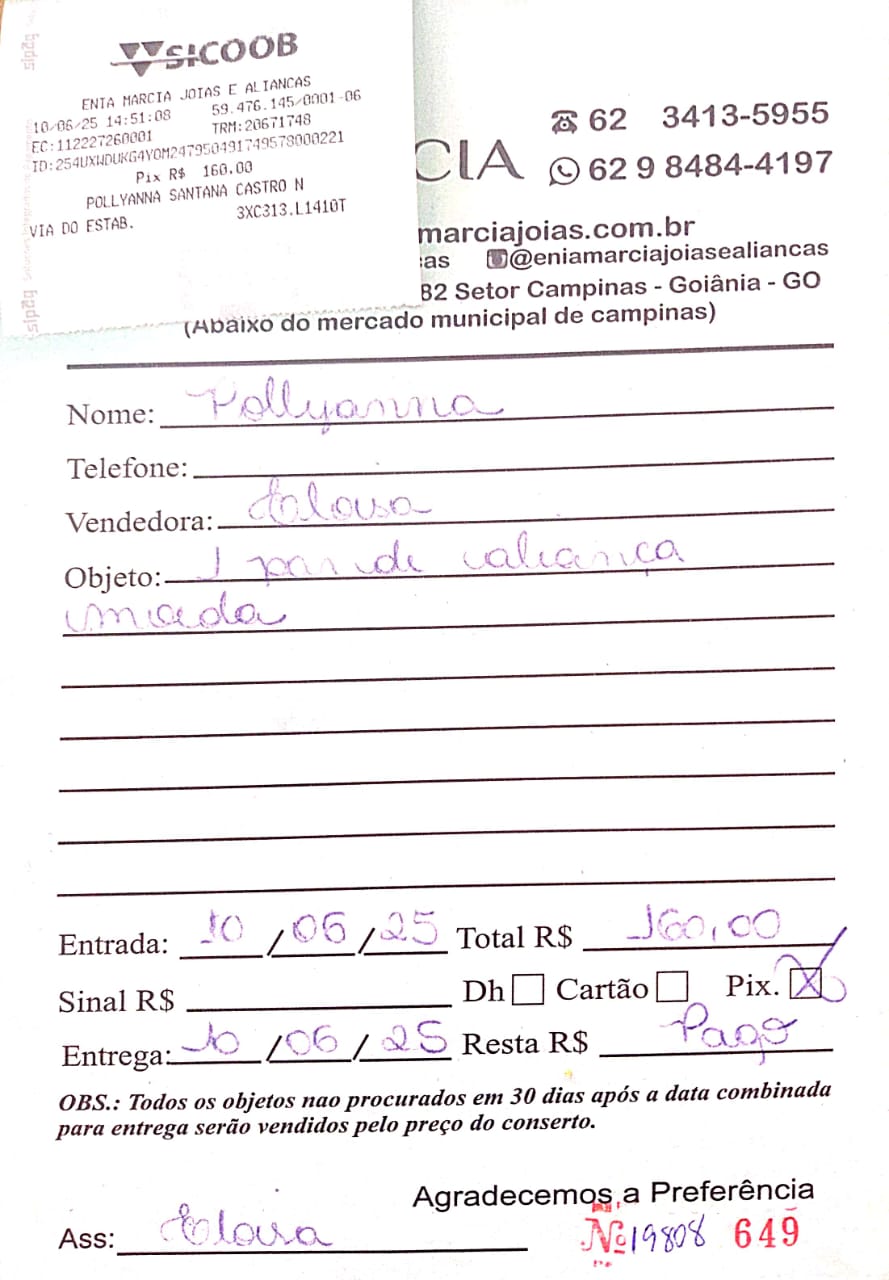 SICOOB
ENIA MARCIA JOIAS E ALIANCAS
10/06/25 14:51:08 59.476.145/0001-06
EC:112227260001 TRM:20671748
ID:254UXWDUKG4YOM247950491749578000221
Pix R$ 160.00
POLLYANNA SANTANA CASTRO N
VIA DO ESTAB. 3XC313.L1410T
sipag
sipag
CIA
62 3413-5955
62 9 8484-4197
marciajoias.com.br
as @eniamarciajoiasealiancas
82 Setor Campinas - Goiânia - GO
(Abaixo do mercado municipal de campinas)
Nome: Pollyanna
Telefone:
Vendedora: Elousa
Objeto: 1 par de aliança
Entrada: 10/06/25 Total R$ 160,00
Sinal R$ Dh Cartão Pix. X
Entrega: 10/06/25 Resta R$ Pago
OBS.: Todos os objetos nao procurados em 30 dias após a data combinada
para entrega serão vendidos pelo preço do conserto.
Agradecemos a Preferência
Ass: Elousa Nº 19808 649